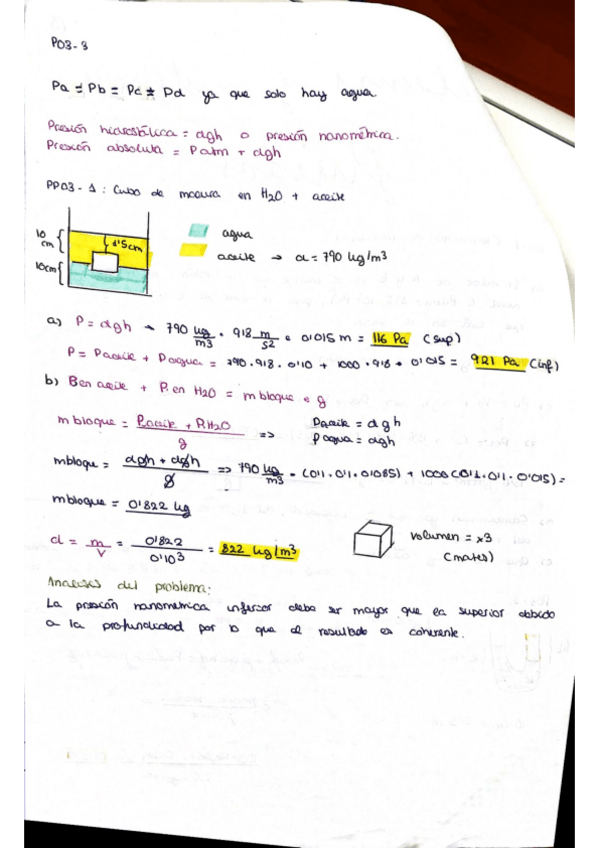 P03-3
Pa = Pb = Pc ≠ Pd ya que solo hay agua
Presión hidrostática = dgh o presión manométrica.
Presión absoluta = Patm + dgh
PP03-1: Cubo de madera en H2O + aceite
10 cm {
1'5cm
10cm {
agua
aceite → d = 790 kg/m3
a) P = dgh → 790 kg/m3 · 9'8 m/s2 · 0'015 m = 116 Pa (sup)
P = Paceite + Pagua = 790 · 9'8 · 0'10 + 1000 · 9'8 · 0'015 = 921 Pa (inf)
b) P en aceite + P. en H2O = m bloque · g
m bloque = Paceite + PH2O / g =>
Paceite = dgh
Pagua = dgh
mbloque = dgh + dgh / g => 790 kg/m3 · (0'1 · 0'1 · 0'085) + 1000 (0'1 · 0'1 · 0'015) =
mbloque = 0'822 kg
d = m/v = 0'822 / 0'10³ = 822 kg/m3
volumen = x3
(mates)
Analisis del problema:
La presión manometrica inferior debe ser mayor que la superior debido
a la profundidad por lo que el resultado es coherente.